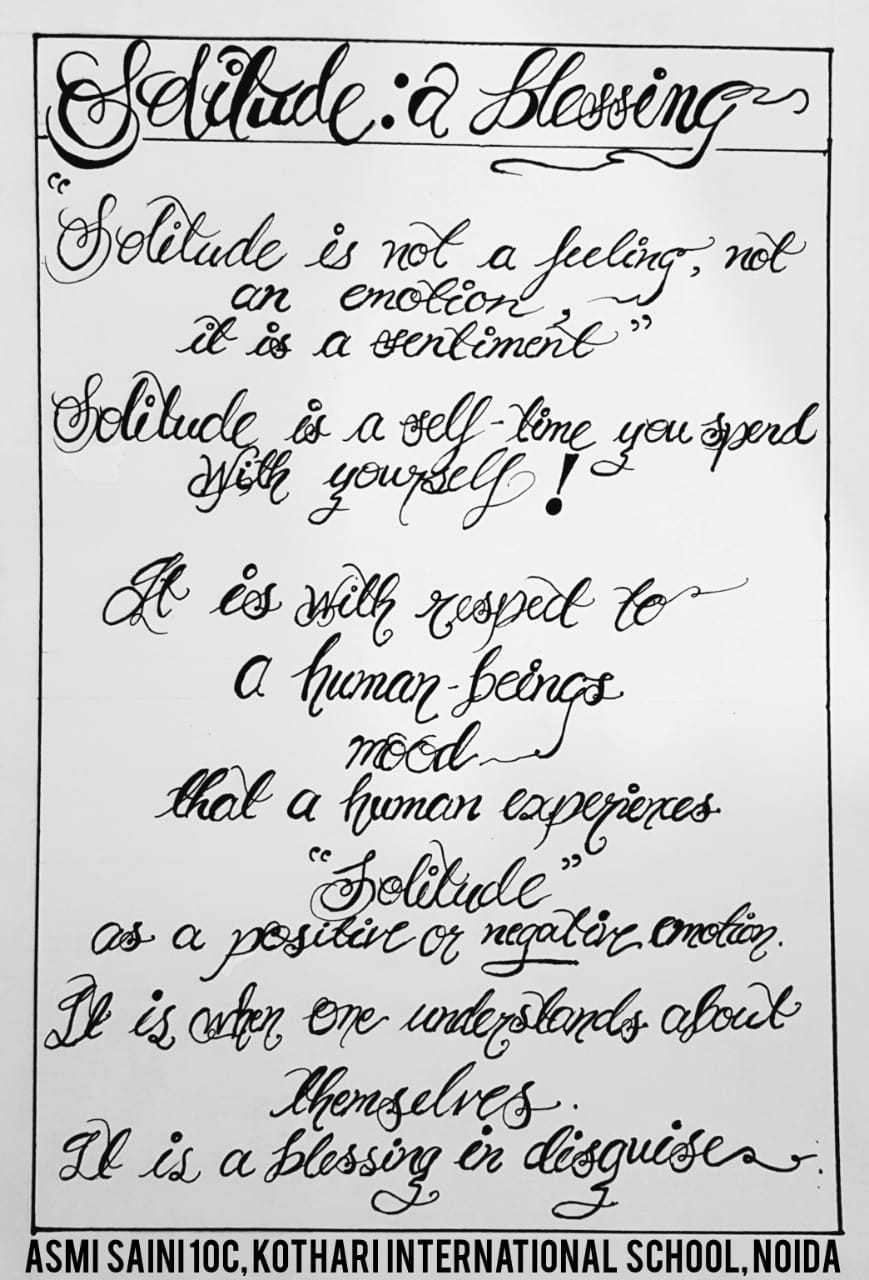 Solitude: a blessing
"Solitude is not a feeling, not
an emotion,
it is a sentiment"
Solitude is a self-time you spend
with yourself!
It is with respect to
a human-beings
mood
that a human experiences
"Solitude"
as a positive or negative emotion.
It is when one understands about
themselves.
It is a blessing in disguise.
ASMI SAINI 10C, KOTHARI INTERNATIONAL SCHOOL, NOIDA